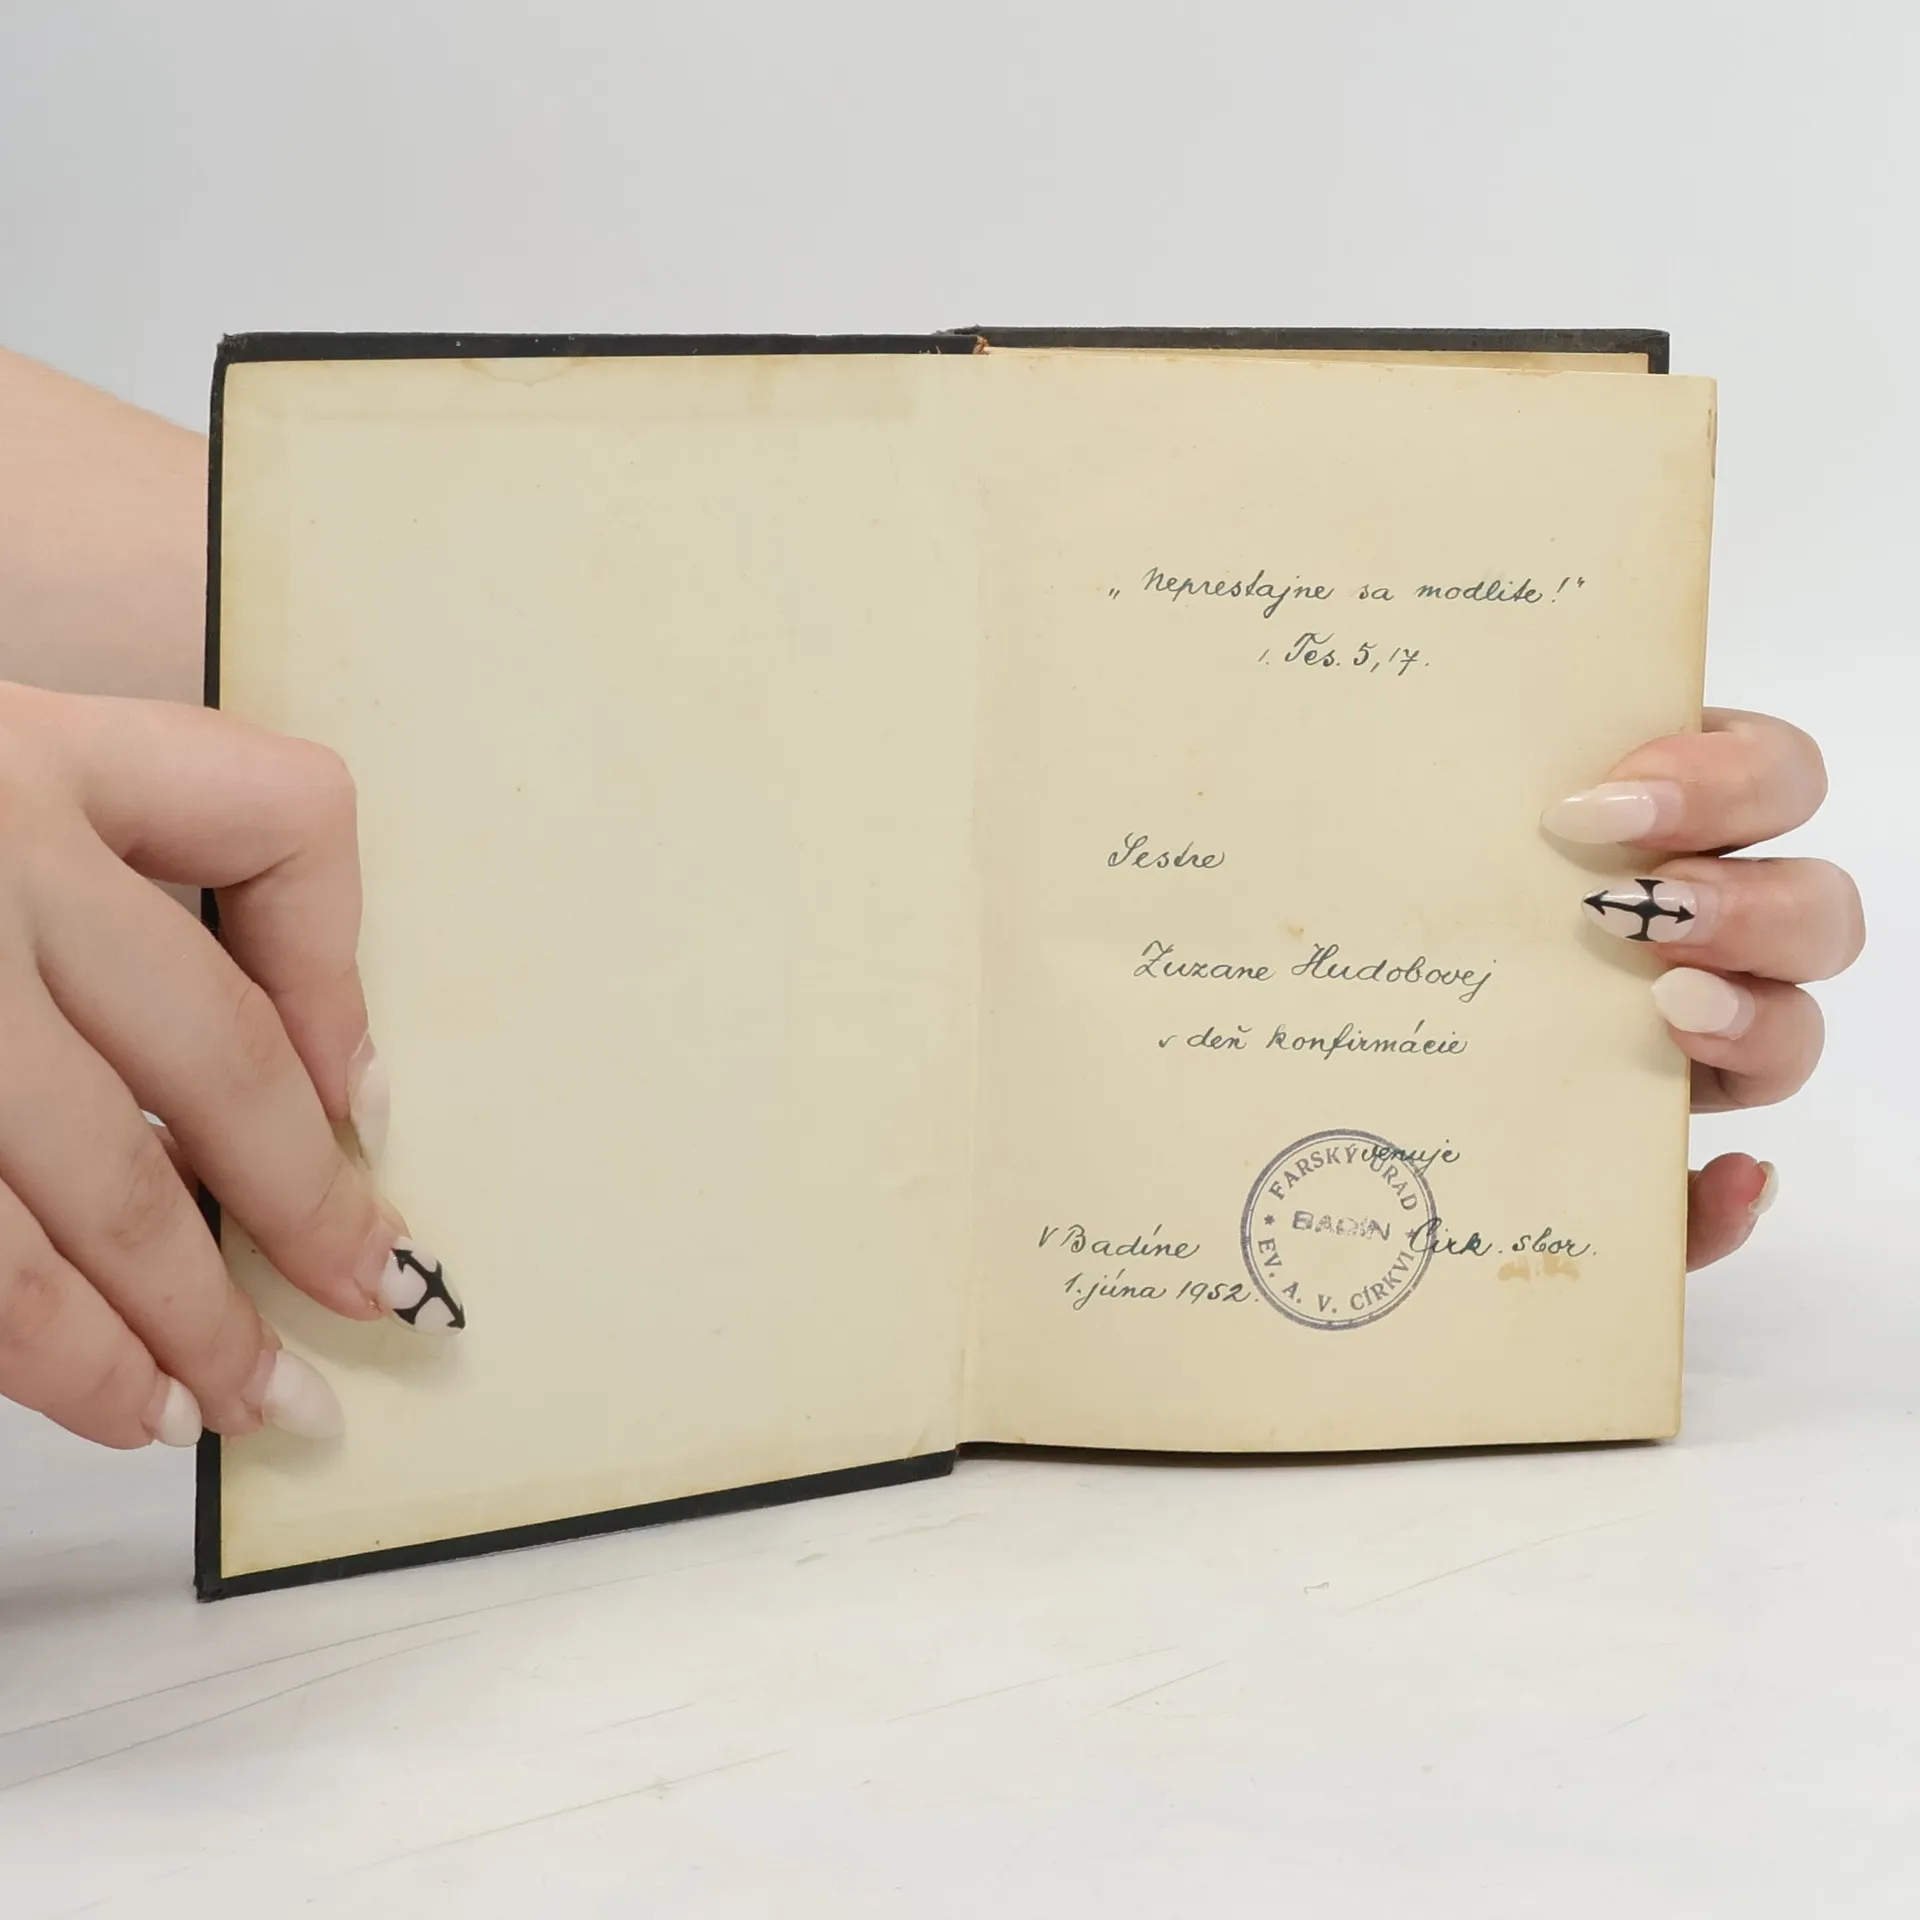 „Neprestajne sa modlite!"
1. Tes. 5,17.
Sestre
Zuzane Hudobovej
v deň konfirmácie
venuje
V Badíne Cirk. sbor.
1. júna 1952.
FARSKÝ ÚRAD
BADÍN
EV. A. V. CÍRKVI